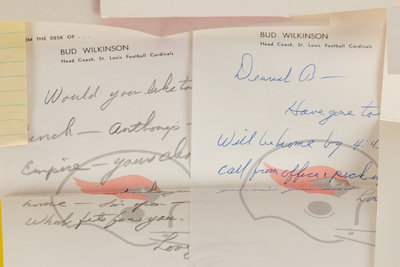 OM THE DESK OF . . .
BUD WILKINSON
Head Coach, St. Louis Football Cardinals
Would you like to
Lunch — Anthony's —
Empire — your cho
home —
What fits you —
Love
BUD WILKINSON
Head Coach, St. Louis Football Cardinals
Dearest B —
Have gone to
Will be home by 4:4
call from office & pick u
Lov